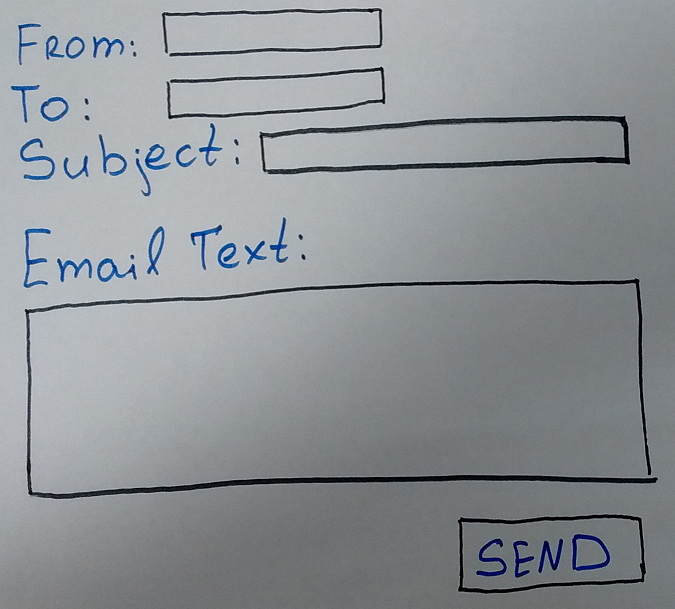 From:
To:
Subject:
Email Text:
SEND